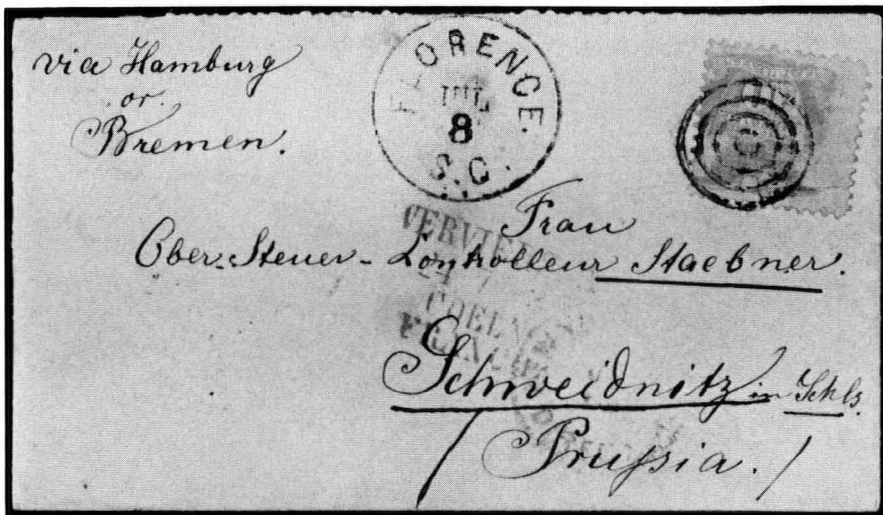 via Hamburg
or
Bremen.
FLORENCE.
JUL
8
S.C.
Frau
Ober-Steuer-Controlleur Staebner.
VERVIE
COELN
Schweidnitz in Schls.
Prußia.